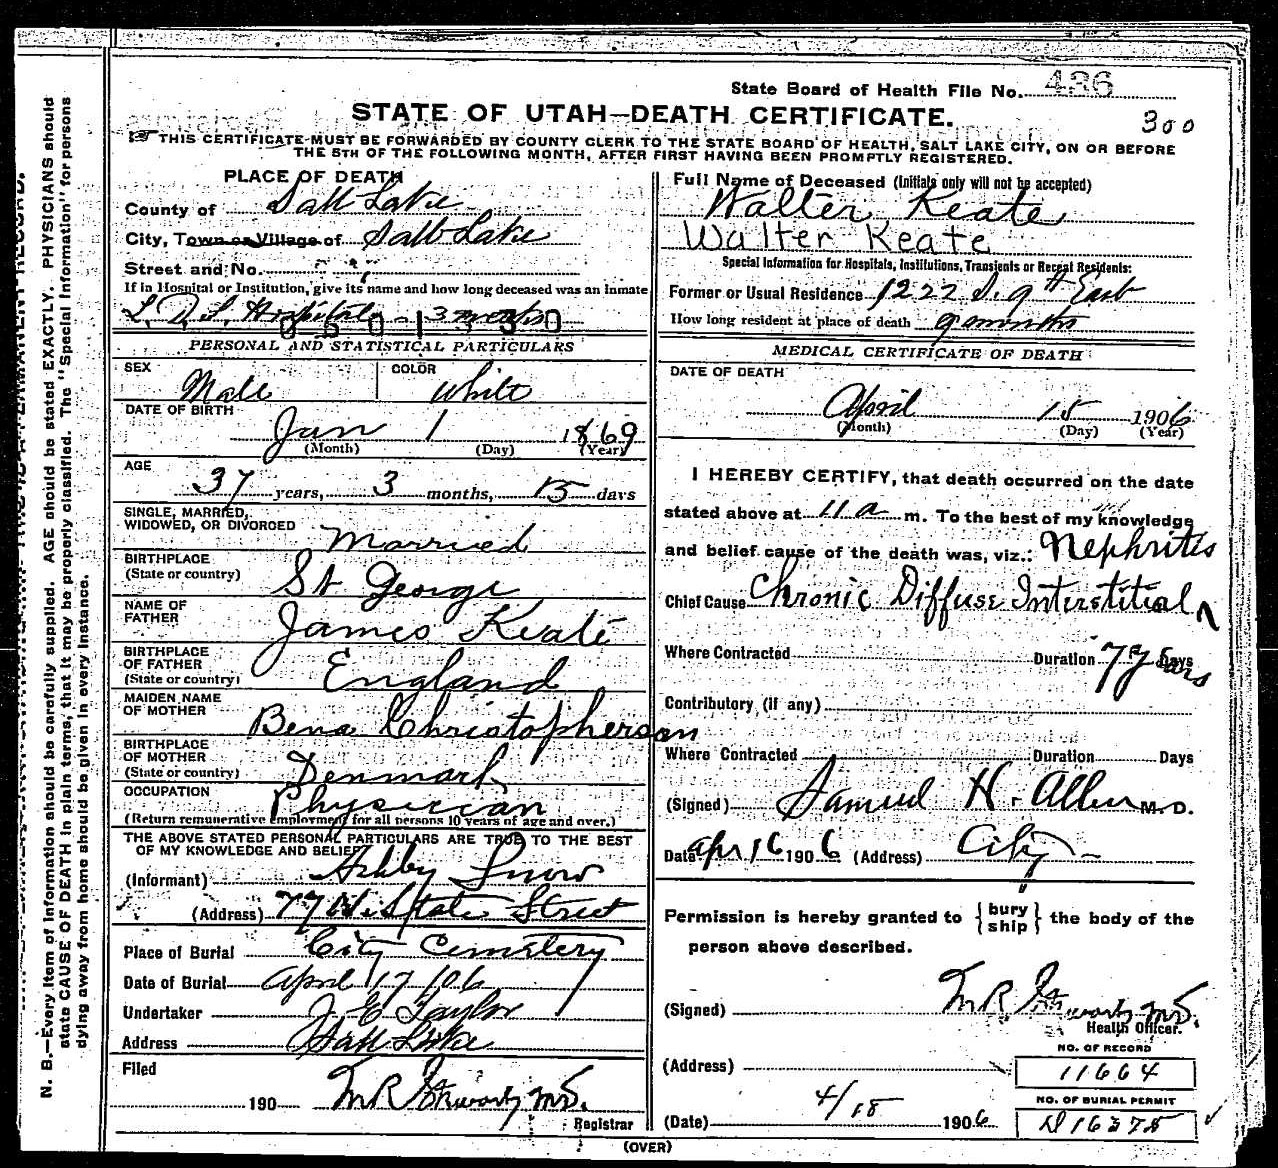 State Board of Health File No. 436
STATE OF UTAH—DEATH CERTIFICATE.
300
THIS CERTIFICATE MUST BE FORWARDED BY COUNTY CLERK TO THE STATE BOARD OF HEALTH, SALT LAKE CITY, ON OR BEFORE
THE 5TH OF THE FOLLOWING MONTH, AFTER FIRST HAVING BEEN PROMPTLY REGISTERED.
PLACE OF DEATH
County of Salt Lake
City, Town or Village of Salt Lake
Street and No.
If in Hospital or Institution, give its name and how long deceased was an inmate
L. D. S. Hospital - 3 weeks
0501330
PERSONAL AND STATISTICAL PARTICULARS
SEX Male COLOR White
DATE OF BIRTH
Jan 1 1869
(Month) (Day) (Year)
AGE
37 years, 3 months, 15 days
SINGLE, MARRIED,
WIDOWED, OR DIVORCED Married
BIRTHPLACE
(State or country) St George
NAME OF
FATHER James Keate
BIRTHPLACE
OF FATHER
(State or country) England
MAIDEN NAME
OF MOTHER Bena Christopherson
BIRTHPLACE
OF MOTHER
(State or country) Denmark
OCCUPATION Physician
(Return remunerative employment for all persons 10 years of age and over.)
THE ABOVE STATED PERSONAL PARTICULARS ARE TRUE TO THE BEST
OF MY KNOWLEDGE AND BELIEF
(Informant) Ashby Snow
(Address) State Street
Place of Burial City Cemetery
Date of Burial April 17/06
Undertaker Taylor
Address Salt Lake
Filed
190
Registrar
Full Name of Deceased (Initials only will not be accepted)
Walter Keate
Walter Keate
Special Information for Hospitals, Institutions, Transients or Recent Residents:
Former or Usual Residence 1222 S. 9th East
How long resident at place of death 9 months
MEDICAL CERTIFICATE OF DEATH
DATE OF DEATH
April 15 1906
(Month) (Day) (Year)
I HEREBY CERTIFY, that death occurred on the date
stated above at 11 a m. To the best of my knowledge
and belief cause of the death was, viz.: Nephritis
Chief Cause Chronic Diffuse Interstitial
Where Contracted Duration 7 years Days
Contributory (if any)
Where Contracted Duration Days
(Signed) Samuel H. Allen M. D.
Date Apr 16 1906 (Address) City
Permission is hereby granted to {bury
ship} the body of the
person above described.
(Signed)
Health Officer.
(Address)
NO. OF RECORD
11664
NO. OF BURIAL PERMIT
D16375
(Date) 4/18 1906
(OVER)
N. B.—Every item of information should be carefully supplied. AGE should be stated EXACTLY. PHYSICIANS should
state CAUSE OF DEATH in plain terms, that it may be properly classified. The "Special Information" for persons
dying away from home should be given in every instance.